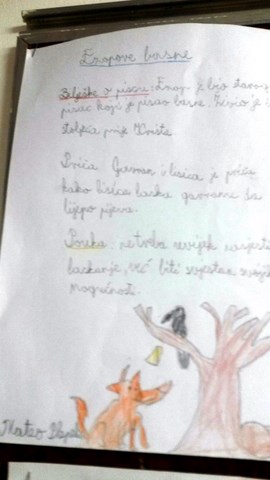 Ezopove basne
Bilješke o piscu: Ezop je bio
pisac koji je pisao basne. Živio je
stoljeća prije Krista
Priča Gavran i lisica je priča
kako lisica laska gavranu da
lijepo pjeva.
Pouka: ne treba uvijek nasjesti
laskanje, već biti svjestan svojih
mogućnosti.
Mateo